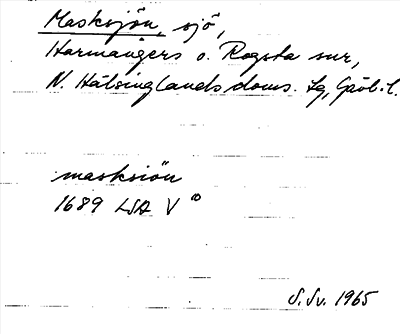 Masksjön, sjö,
Harmångers o. Rogsta snr,
N. Hälsinglands doms. tg, Gävl. l.
masksiön
1689 LSA V 10
S. Sv. 1965